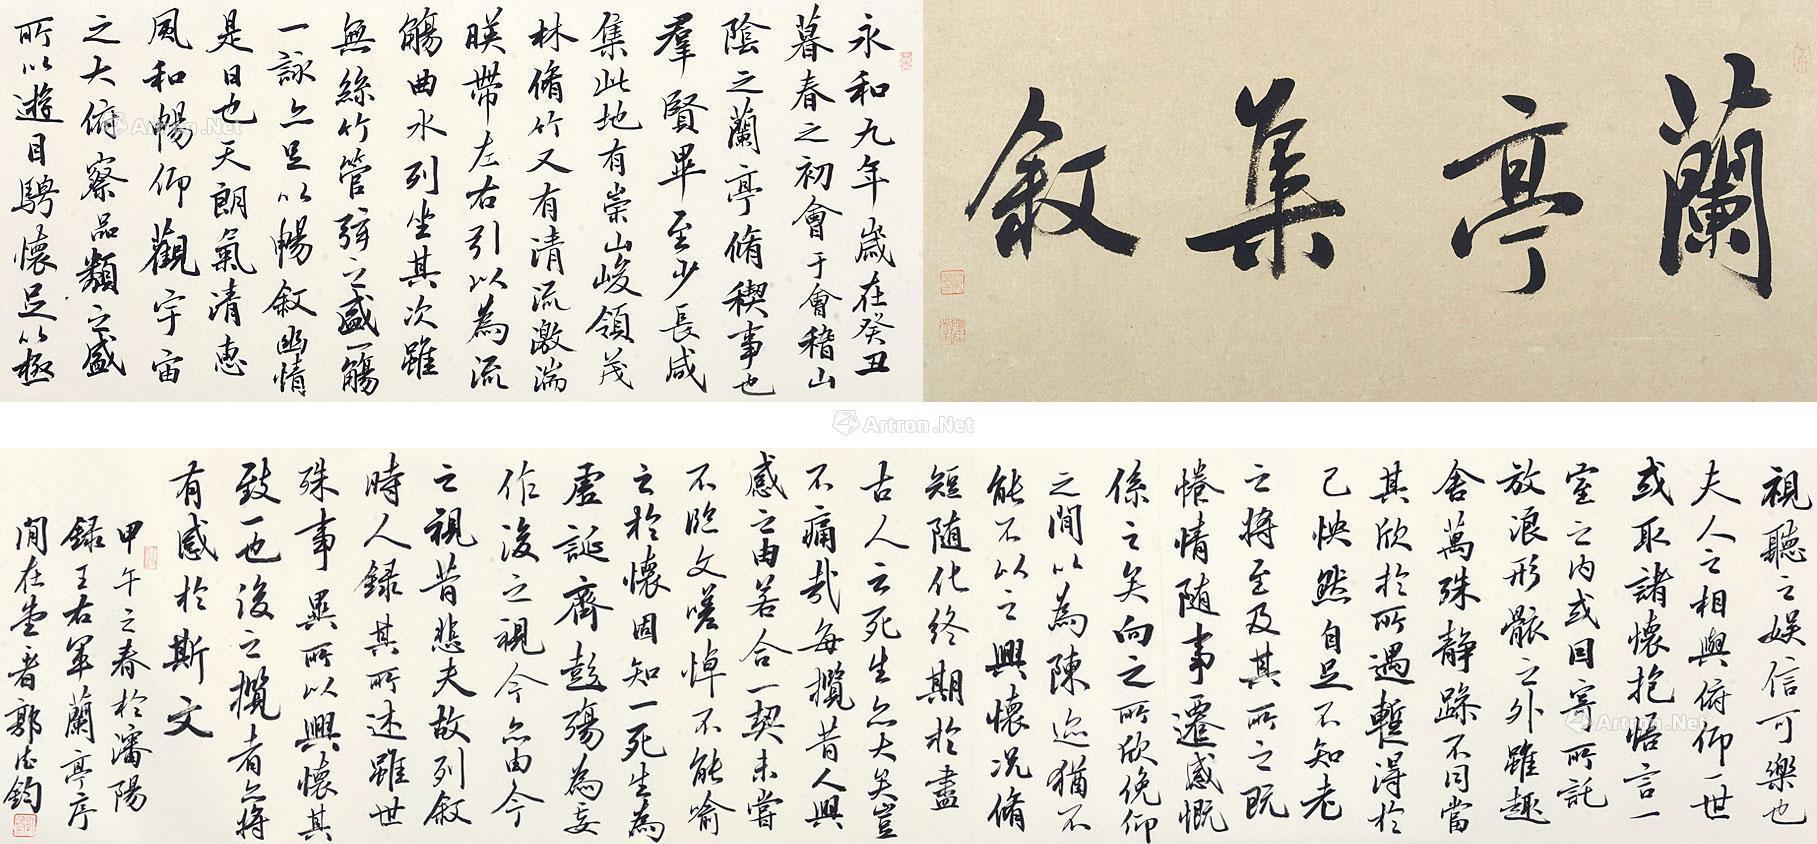 蘭亭集敘
永和九年歲在癸丑
暮春之初會于會稽山
陰之蘭亭脩稧事也
羣賢畢至少長咸
集此地有崇山峻領茂
林脩竹又有清流激湍
暎帶左右引以為流
觴曲水列坐其次雖
無絲竹管弦之盛一觴
一詠亦足以暢敘幽情
是日也天朗氣清惠
風和暢仰觀宇宙
之大俯察品類之盛
所以遊目騁懷足以極
視聽之娛信可樂也
夫人之相與俯仰一世
或取諸懷抱悟言一
室之内或因寄所託
放浪形骸之外雖趣
舍萬殊靜躁不同當
其欣於所遇暫得於
己怏然自足不知老
之將至及其所之既
惓情隨事遷感慨
係之矣向之所欣俛仰
之間以為陳迹猶不
能不以之興懷況脩
短隨化終期於盡
古人云死生亦大矣豈
不痛哉每攬昔人興
感之由若合一契未嘗
不臨文嗟悼不能喻
之於懷固知一死生為
虛誕齊彭殤為妄
作後之視今亦由今
之視昔悲夫故列敘
時人錄其所述雖世
殊事異所以興懷其
致一也後之攬者亦將
有感於斯文
甲午之春於瀋陽
錄王右軍蘭亭序
閒在堂者郭德鈞
Artron.Net